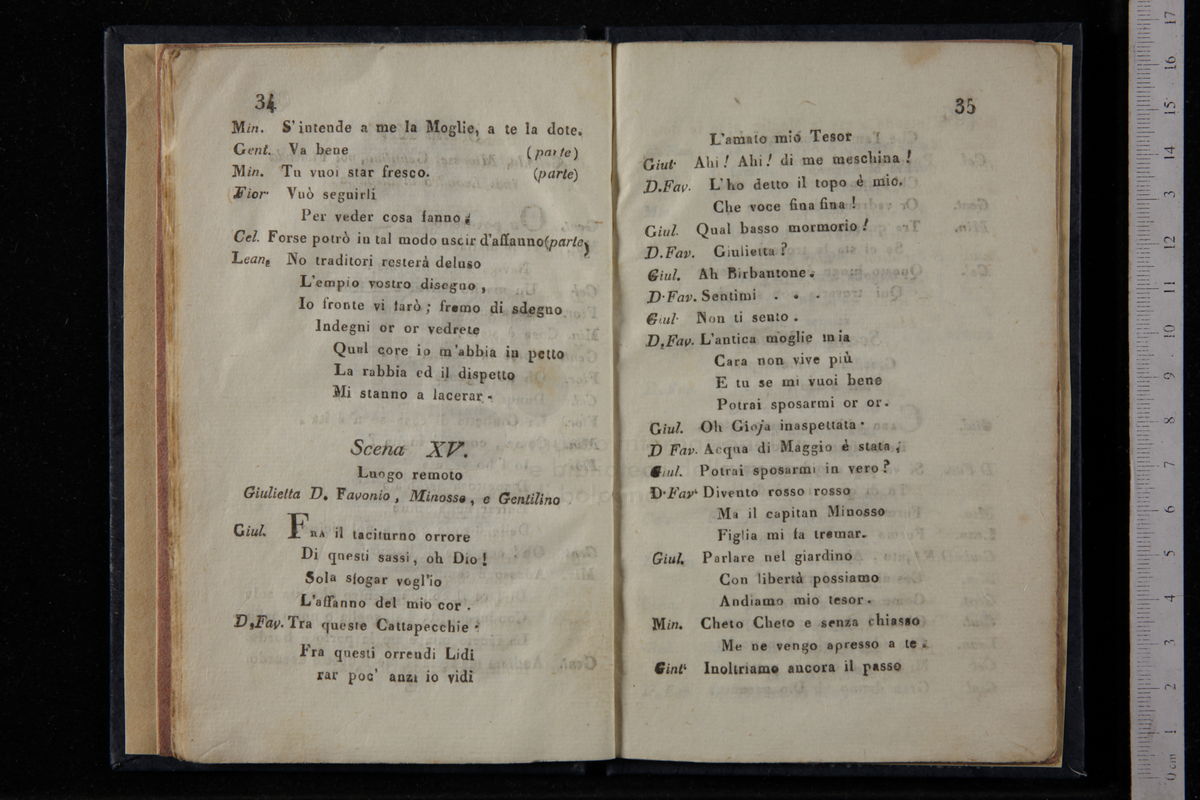 34
Min. S'intende a me la Moglie, a te la dote.
Gent. Va bene (parte)
Min. Tu vuoi star fresco. (parte)
Fior. Vuò seguirli
Per veder cosa fanno.
Cel. Forse potrò in tal modo uscir d'affanno (parte)
Lean. No traditori resterà deluso
L'empio vostro disegno,
Io fronte vi farò; fremo di sdegno
Indegni or or vedrete
Qual core io m'abbia in petto
La rabbia ed il dispetto
Mi stanno a lacerar.
Scena XV.
Luogo remoto
Giulietta D. Favonio, Minosse, e Gentilino
Giul. Fra il taciturno orrore
Di questi sassi, oh Dio!
Sola sfogar vogl'io
L'affanno del mio cor.
D. Fav. Tra queste Cattapecchie
Fra questi orrendi Lidi
rar poc' anzi io vidi
35
L'amato mio Tesor
Giul. Ahi! Ahi! di me meschina!
D. Fav. L'ho detto il topo è mio.
Che voce fina fina!
Giul. Qual basso mormorio!
D. Fav. Giulietta?
Giul. Ah Birbantone.
D. Fav. Sentimi . . .
Giul. Non ti sento.
D. Fav. L'antica moglie mia
Cara non vive più
E tu se mi vuoi bene
Potrai sposarmi or or.
Giul. Oh Gioja inaspettata.
D Fav. Acqua di Maggio è stata,
Giul. Potrai sposarmi in vero?
D. Fav. Divento rosso rosso
Ma il capitan Minosso
Figlia mi fa tremar.
Giul. Parlare nel giardino
Con libertà possiamo
Andiamo mio tesor.
Min. Cheto Cheto e senza chiasso
Me ne vengo apresso a te.
Gint. Inoltriamo ancora il passo